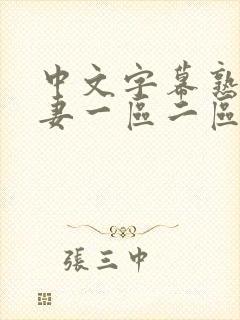 中文字幕熟
妻一區二區
張三中